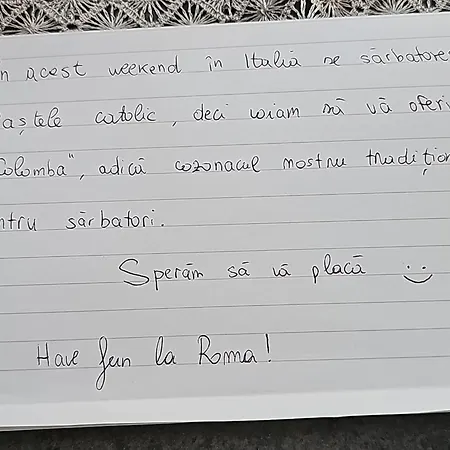 n acest weekend în Italia se sărbatore
aștele catolic, deci voiam să vă oferi
Colomba", adică cozonacul nostru tradițion
ntru sărbatori.
Sperăm să vă placă :)
Have fun la Roma!